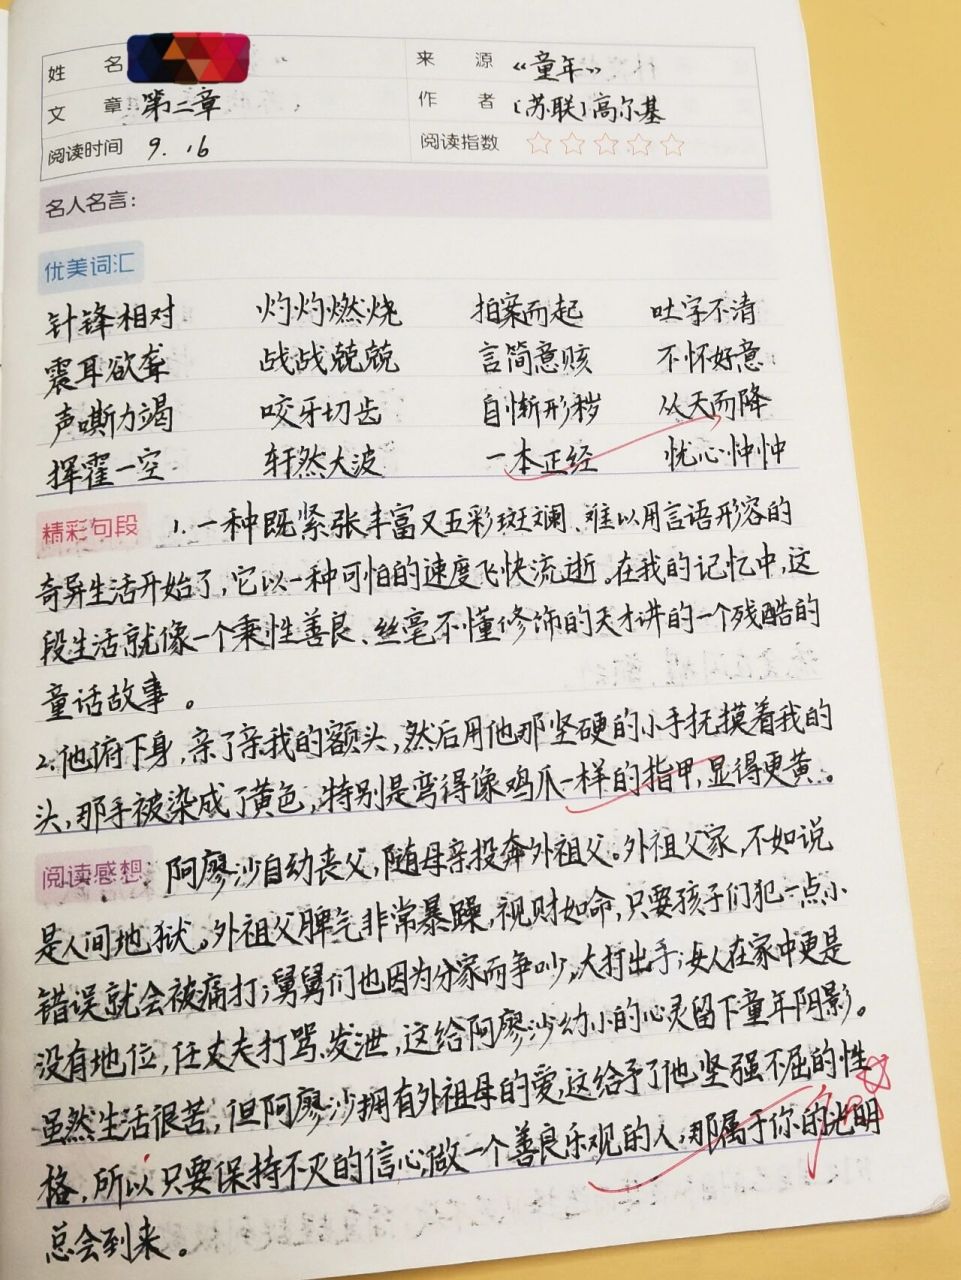 姓名 来源 《童年》
文章 第二章 作者 [苏联]高尔基
阅读时间 9.16 阅读指数
名人名言：
优美词汇
针锋相对 灼灼燃烧 拍案而起 吐字不清
震耳欲聋 战战兢兢 言简意赅 不怀好意
声嘶力竭 咬牙切齿 自惭形秽 从天而降
挥霍一空 轩然大波 一本正经 忧心忡忡
精彩句段 1.一种既紧张丰富又五彩斑斓、难以用言语形容的
奇异生活开始了,它以一种可怕的速度飞快流逝。在我的记忆中,这
段生活就像一个秉性善良、丝毫不懂修饰的天才讲的一个残酷的
童话故事。
2.他俯下身,亲了亲我的额头,然后用他那坚硬的小手抚摸着我的
头,那手被染成了黄色,特别是弯得像鸡爪一样的指甲,显得更黄。
阅读感想 阿廖沙自幼丧父,随母亲投奔外祖父。外祖父家,不如说
是人间地狱。外祖父脾气非常暴躁,视财如命,只要孩子们犯一点小
错误就会被痛打;舅舅们也因为分家而争吵,大打出手;女人在家中更是
没有地位,任丈夫打骂、发泄,这给阿廖沙幼小的心灵留下童年阴影。
虽然生活很苦,但阿廖沙拥有外祖母的爱,这给予了他坚强不屈的性
格,所以只要保持不灭的信心,做一个善良乐观的人,那属于你的光明
总会到来。